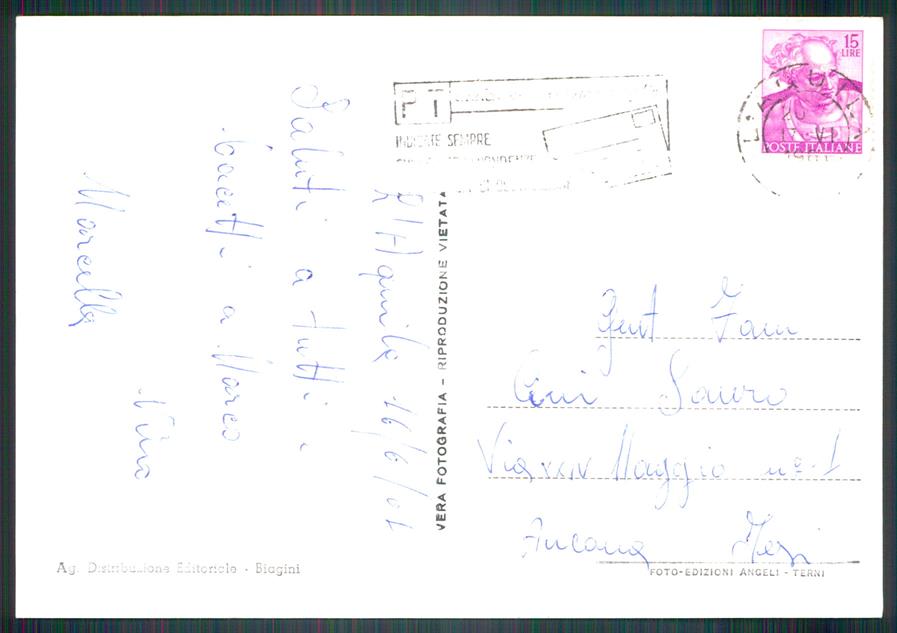 L'Aquila 16/6/61
Saluti a tutti,
bacetti a Marco
Nino
Marcella
VERA FOTOGRAFIA - RIPRODUZIONE VIETATA
Ag. Distribuzione Editoriale - Biagini
PT
INDICATE SEMPRE
15
LIRE
POSTE ITALIANE
L'AQUILA
VI
Gent Fam
Cini Sauro
Via XXIV Maggio n° 1
Ancona Jesi
FOTO-EDIZIONI ANGELI - TERNI